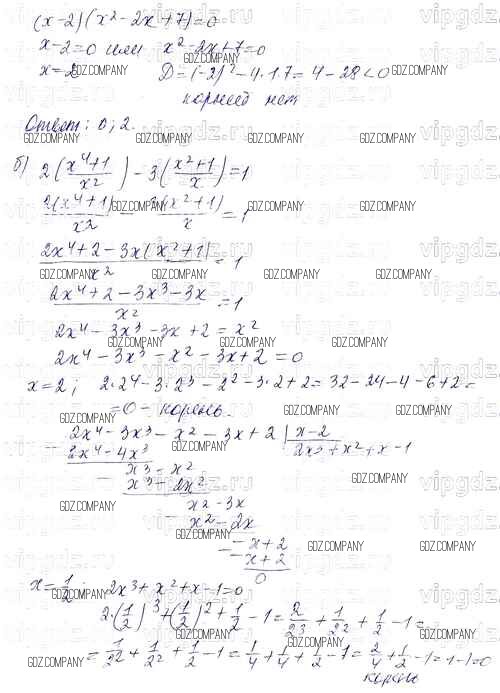 (x-2)(x²-2x+7)=0
x-2=0 или x²-2x+7=0
x=2 D=(-2)²-4·1·7=4-28<0
корней нет
Ответ: 0; 2.
б) 2((x⁴+1)/x²) - 3((x²+1)/x)=1
2(x⁴+1)/x² - 3(x²+1)/x = 1
(2x⁴+2-3x(x²+1))/x² = 1
(2x⁴+2-3x³-3x)/x² = 1
2x⁴-3x³-3x+2=x²
2x⁴-3x³-x²-3x+2=0
x=2; 2·2⁴-3·2³-2²-3·2+2=32-24-4-6+2=
=0 - корень.
2x⁴-3x³-x²-3x+2 | x-2
2x⁴-4x³ 2x³+x²+x-1
x³-x²
x³-2x²
x²-3x
x²-2x
-x+2
-x+2
0
x=1/2; 2x³+x²+x-1=0
2·(1/2)³+(1/2)²+1/2-1=2/2³+1/2²+1/2-1=
=1/2²+1/2²+1/2-1=1/4+1/4+1/2-1=2/4+1/2-1=1-1=0
корень
GDZ.COMPANY
vipgdz.ru